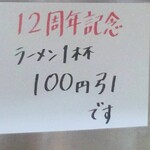 12周年記念
ラーメン1杯
100円引
です